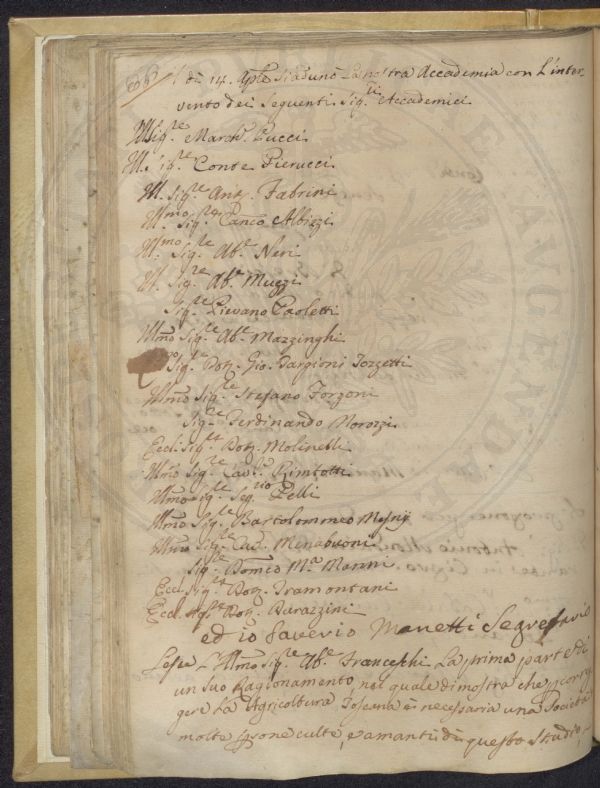 il dì 14. Aple Si adunò La nostra Accademia con L'inter-
vento dei Seguenti Sigri Accademici
Ill. Sigre March. Pucci
Ill. Sigre Conte Pierucci
Ill. Sigre Ant. Fabrini
Illmo Sigre Canco Albizzi
Illmo Sigre Abe Neri
Ill. Sigre Abe Muzzi
Sigre Pievano Paoletti
Illmo Sigre Abe Mazzinghi
Sigre Dott. Gio. Targioni Tozzetti
Illmo Sigre Stefano Forzoni
Sigre Ferdinando Morozzi
Eccl. Sigre Dott. Molinelli
Illmo Sigre Cav. Rimbotti
Illmo Sigre Segrio Pelli
Illmo Sigre Bartolommeo Mesnÿ
Illmo Sigre Cav. Menabuoni
Sigre Domco Ma Manni
Eccl. Sigre Dott. Tramontani
Eccl. Sigre Dott. Barazzini
ed io Saverio Manetti Segretario
Lesse L'Illmo Sigre Abe Franceschi La prima parte di
un suo Ragionamento, nel quale dimostra che p corrg-
gere La Agricoltura Toscana è necessaria una Società
molte psone culte, e amanti di questo Studio,